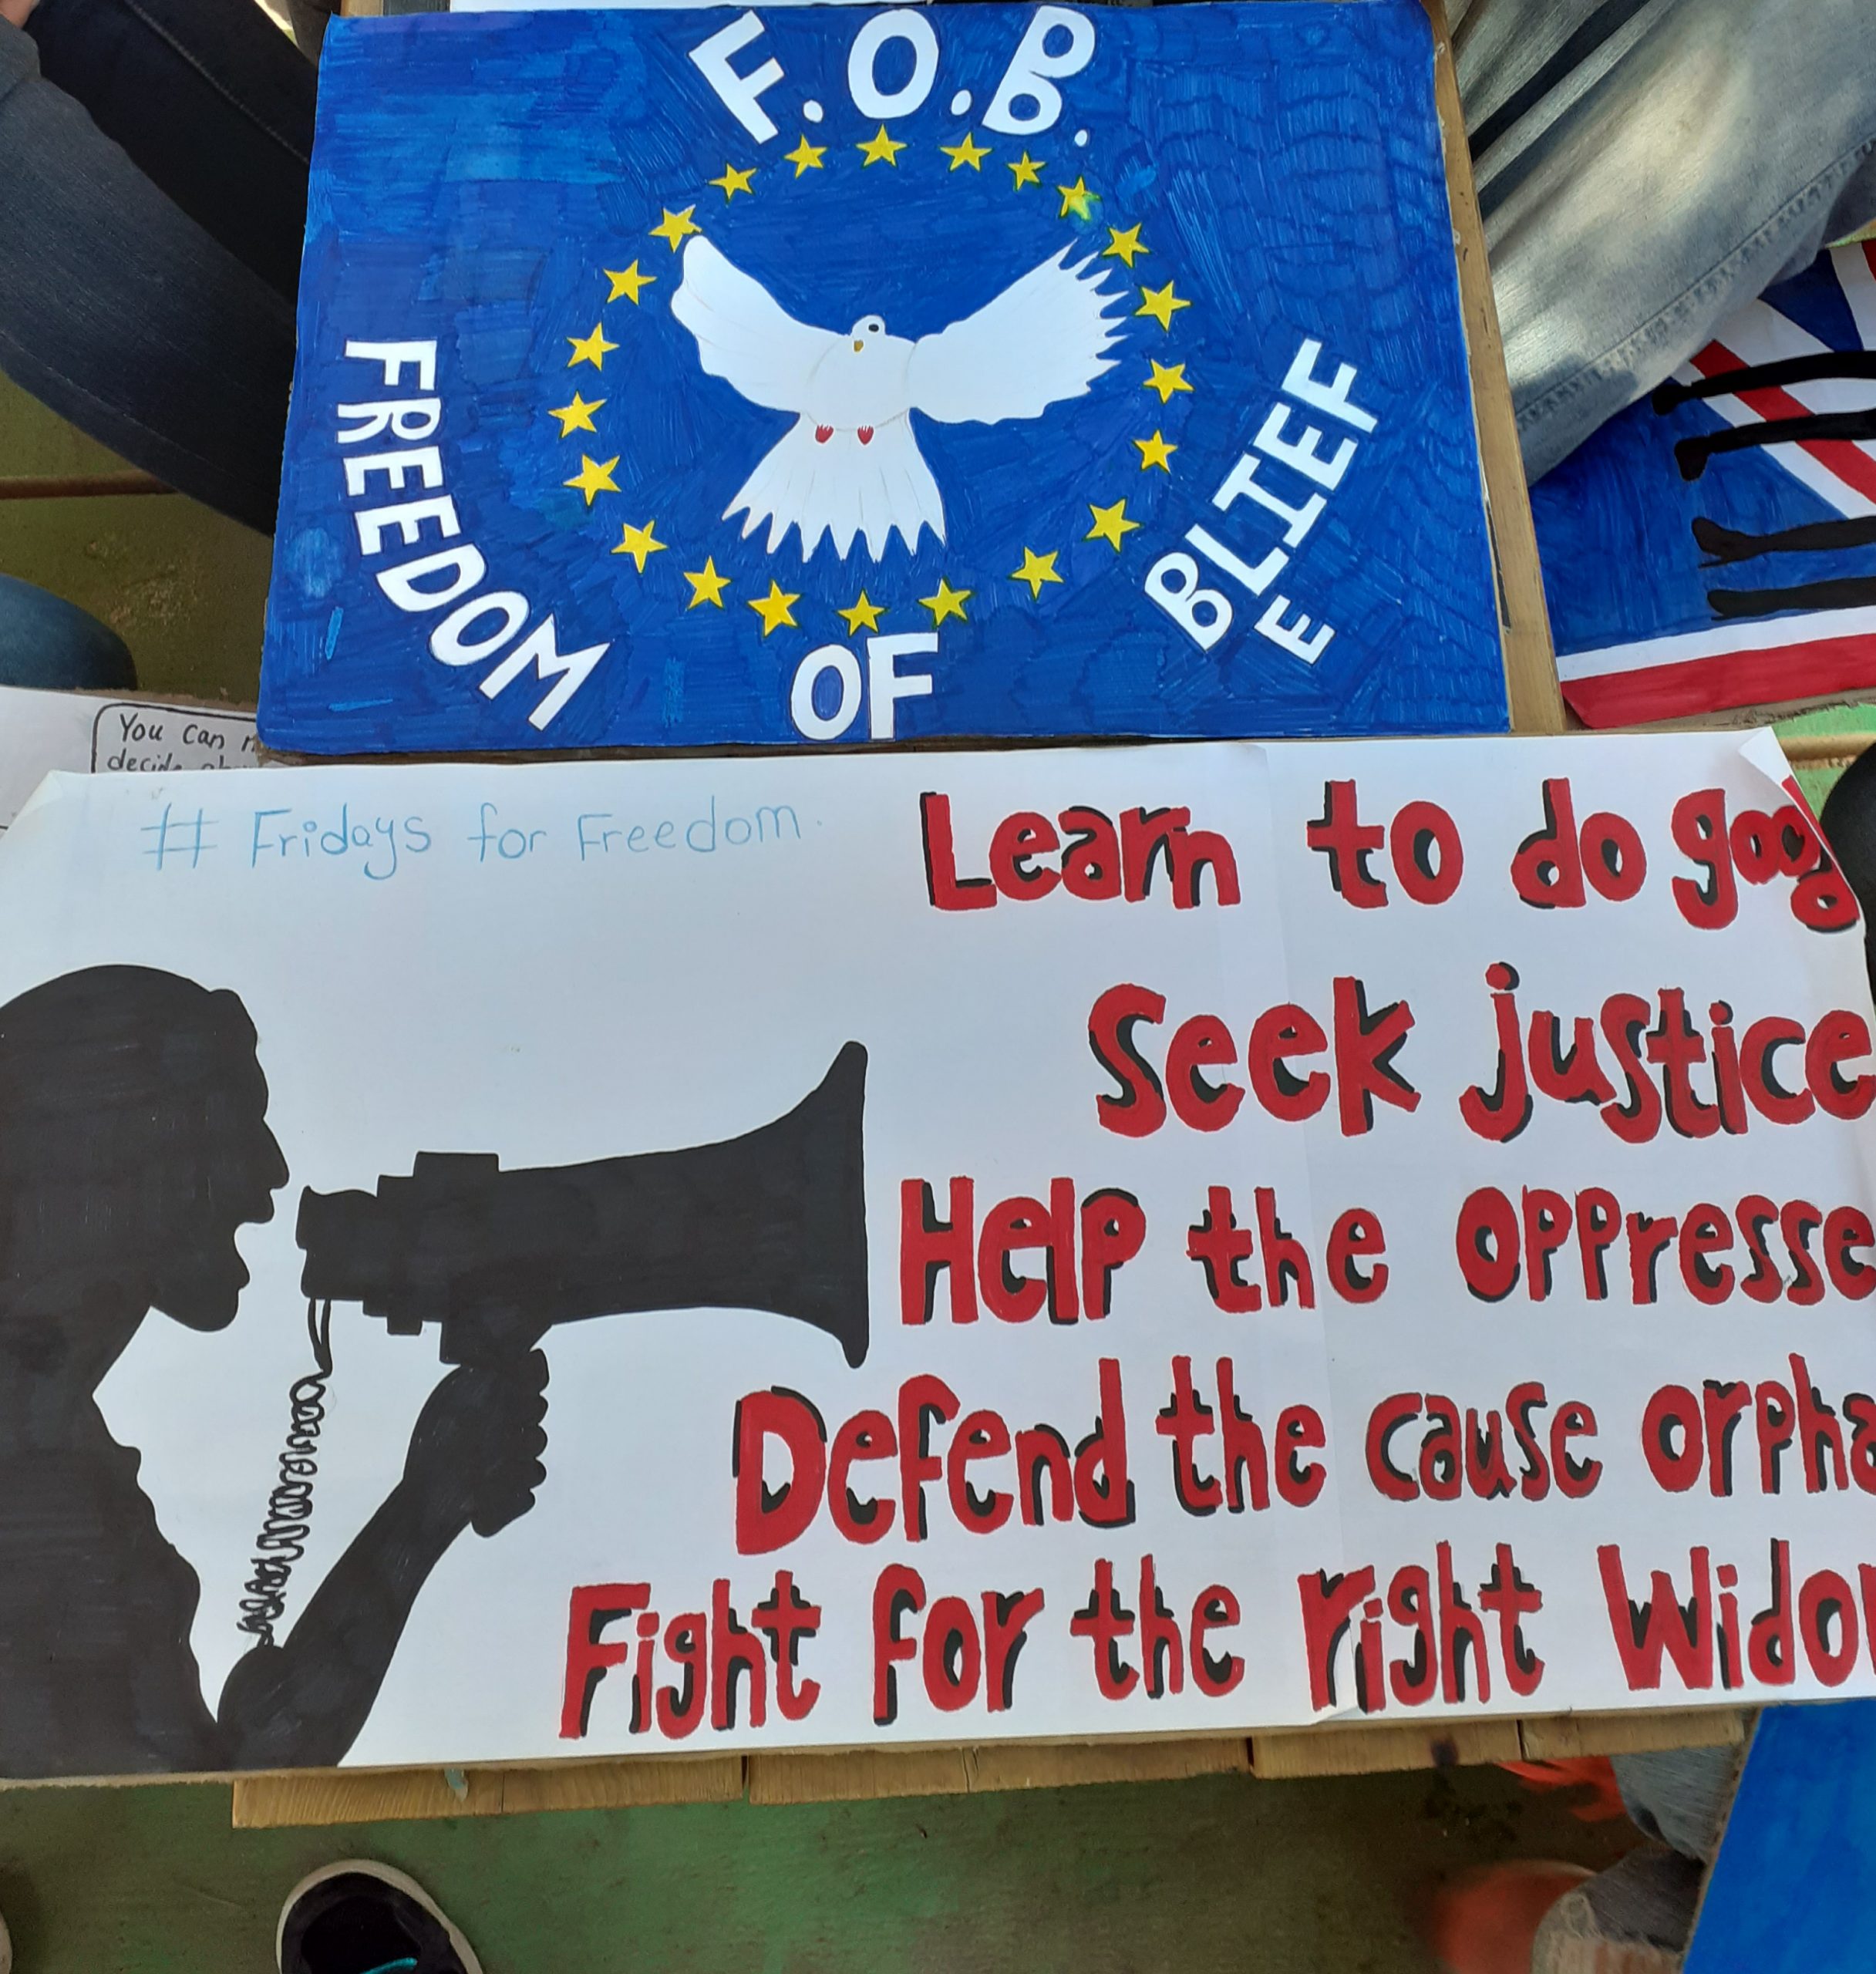 F.O.B.
FREEDOM
OF
BLIEF
E
You can
# Fridays for Freedom.
Learn to do good
Seek justice
Help the oppresse
Defend the cause orpha
Fight for the right Wido